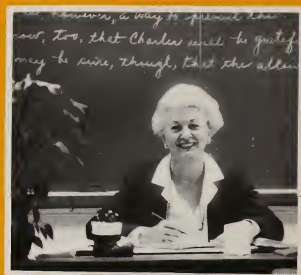 however, a way to prevent the
ow, too, that Charles will be gratef
may be sure, though, that the allow